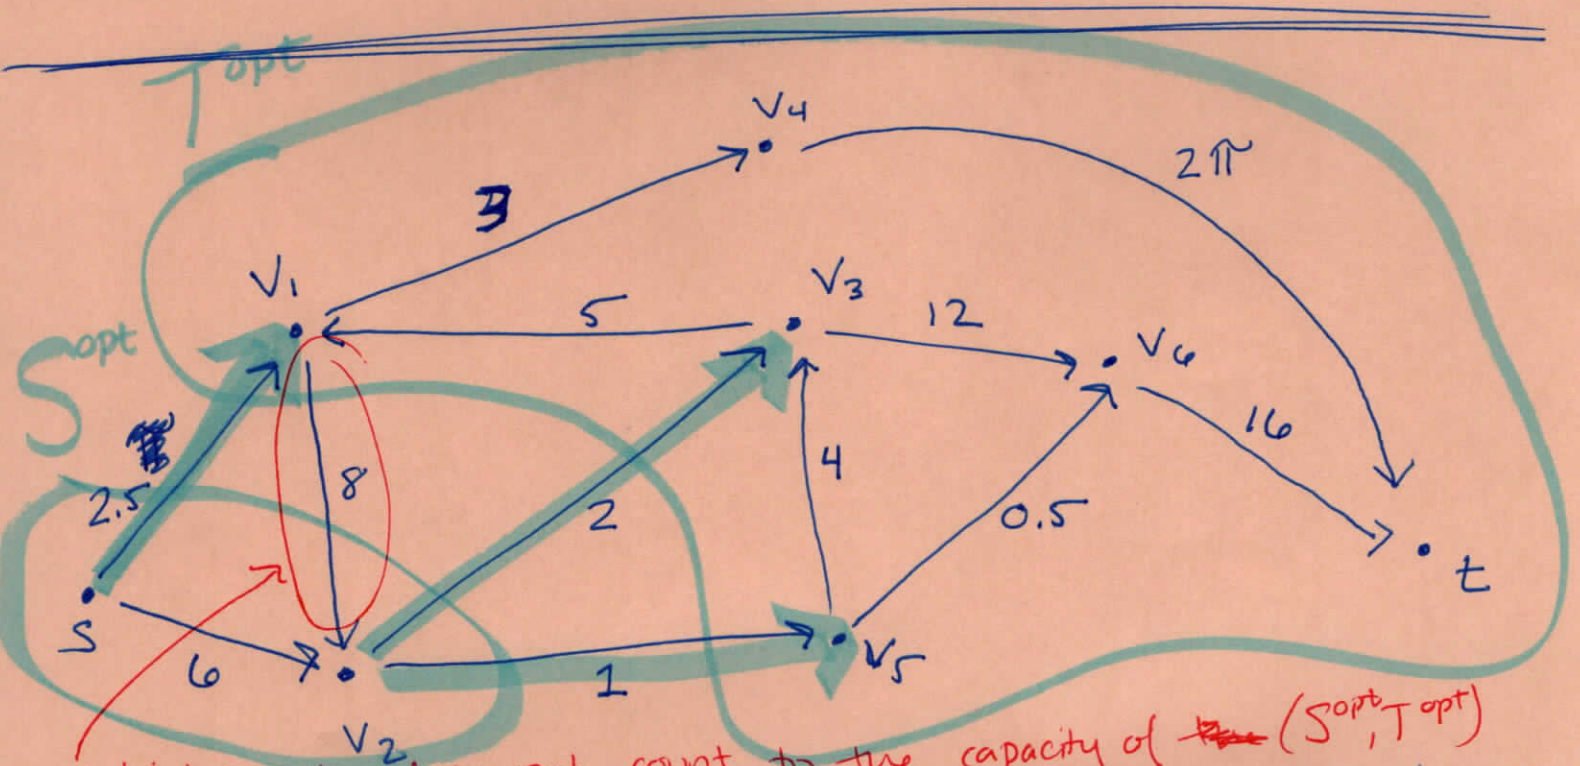 T opt
V4
2π
3
V1
V3
5
12
V6
S opt
16
8
4
2.5
2
0.5
t
S
6
1
V5
V2
count to the capacity of (S opt, T opt)